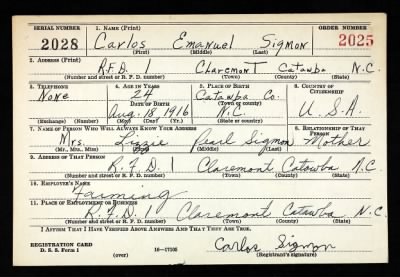 SERIAL NUMBER 1. NAME (Print) ORDER NUMBER
2028 Carlos Emanuel Sigmon 2025
(First) (Middle) (Last)
2. ADDRESS (Print)
R.F.D. 1 Claremont Catawba N.C.
(Number and street or R. F. D. number) (Town) (County) (State)
3. TELEPHONE 4. AGE IN YEARS 5. PLACE OF BIRTH 6. COUNTRY OF CITIZENSHIP
None 24 Catawba Co.
DATE OF BIRTH (Town or county)
Aug. 18 1916 N.C. U.S.A.
(Exchange) (Number) (Mo.) (Day) (Yr.) (State or country)
7. NAME OF PERSON WHO WILL ALWAYS KNOW YOUR ADDRESS 8. RELATIONSHIP OF THAT PERSON
Mrs. Lizzie Pearl Sigmon Mother
(Mr., Mrs., Miss) (First) (Middle) (Last)
9. ADDRESS OF THAT PERSON
R.F.D. 1 Claremont Catowba N.C
(Number and street or R. F. D. number) (Town) (County) (State)
10. EMPLOYER'S NAME
Farming
11. PLACE OF EMPLOYMENT OR BUSINESS
R.F.D. 1 Claremont Catawba N.C.
(Number and street or R. F. D. number) (Town) (County) (State)
I AFFIRM THAT I HAVE VERIFIED ABOVE ANSWERS AND THAT THEY ARE TRUE.
REGISTRATION CARD Carlos Sigmon
D. S. S. Form 1 (over) 16—17105 (Registrant's signature)